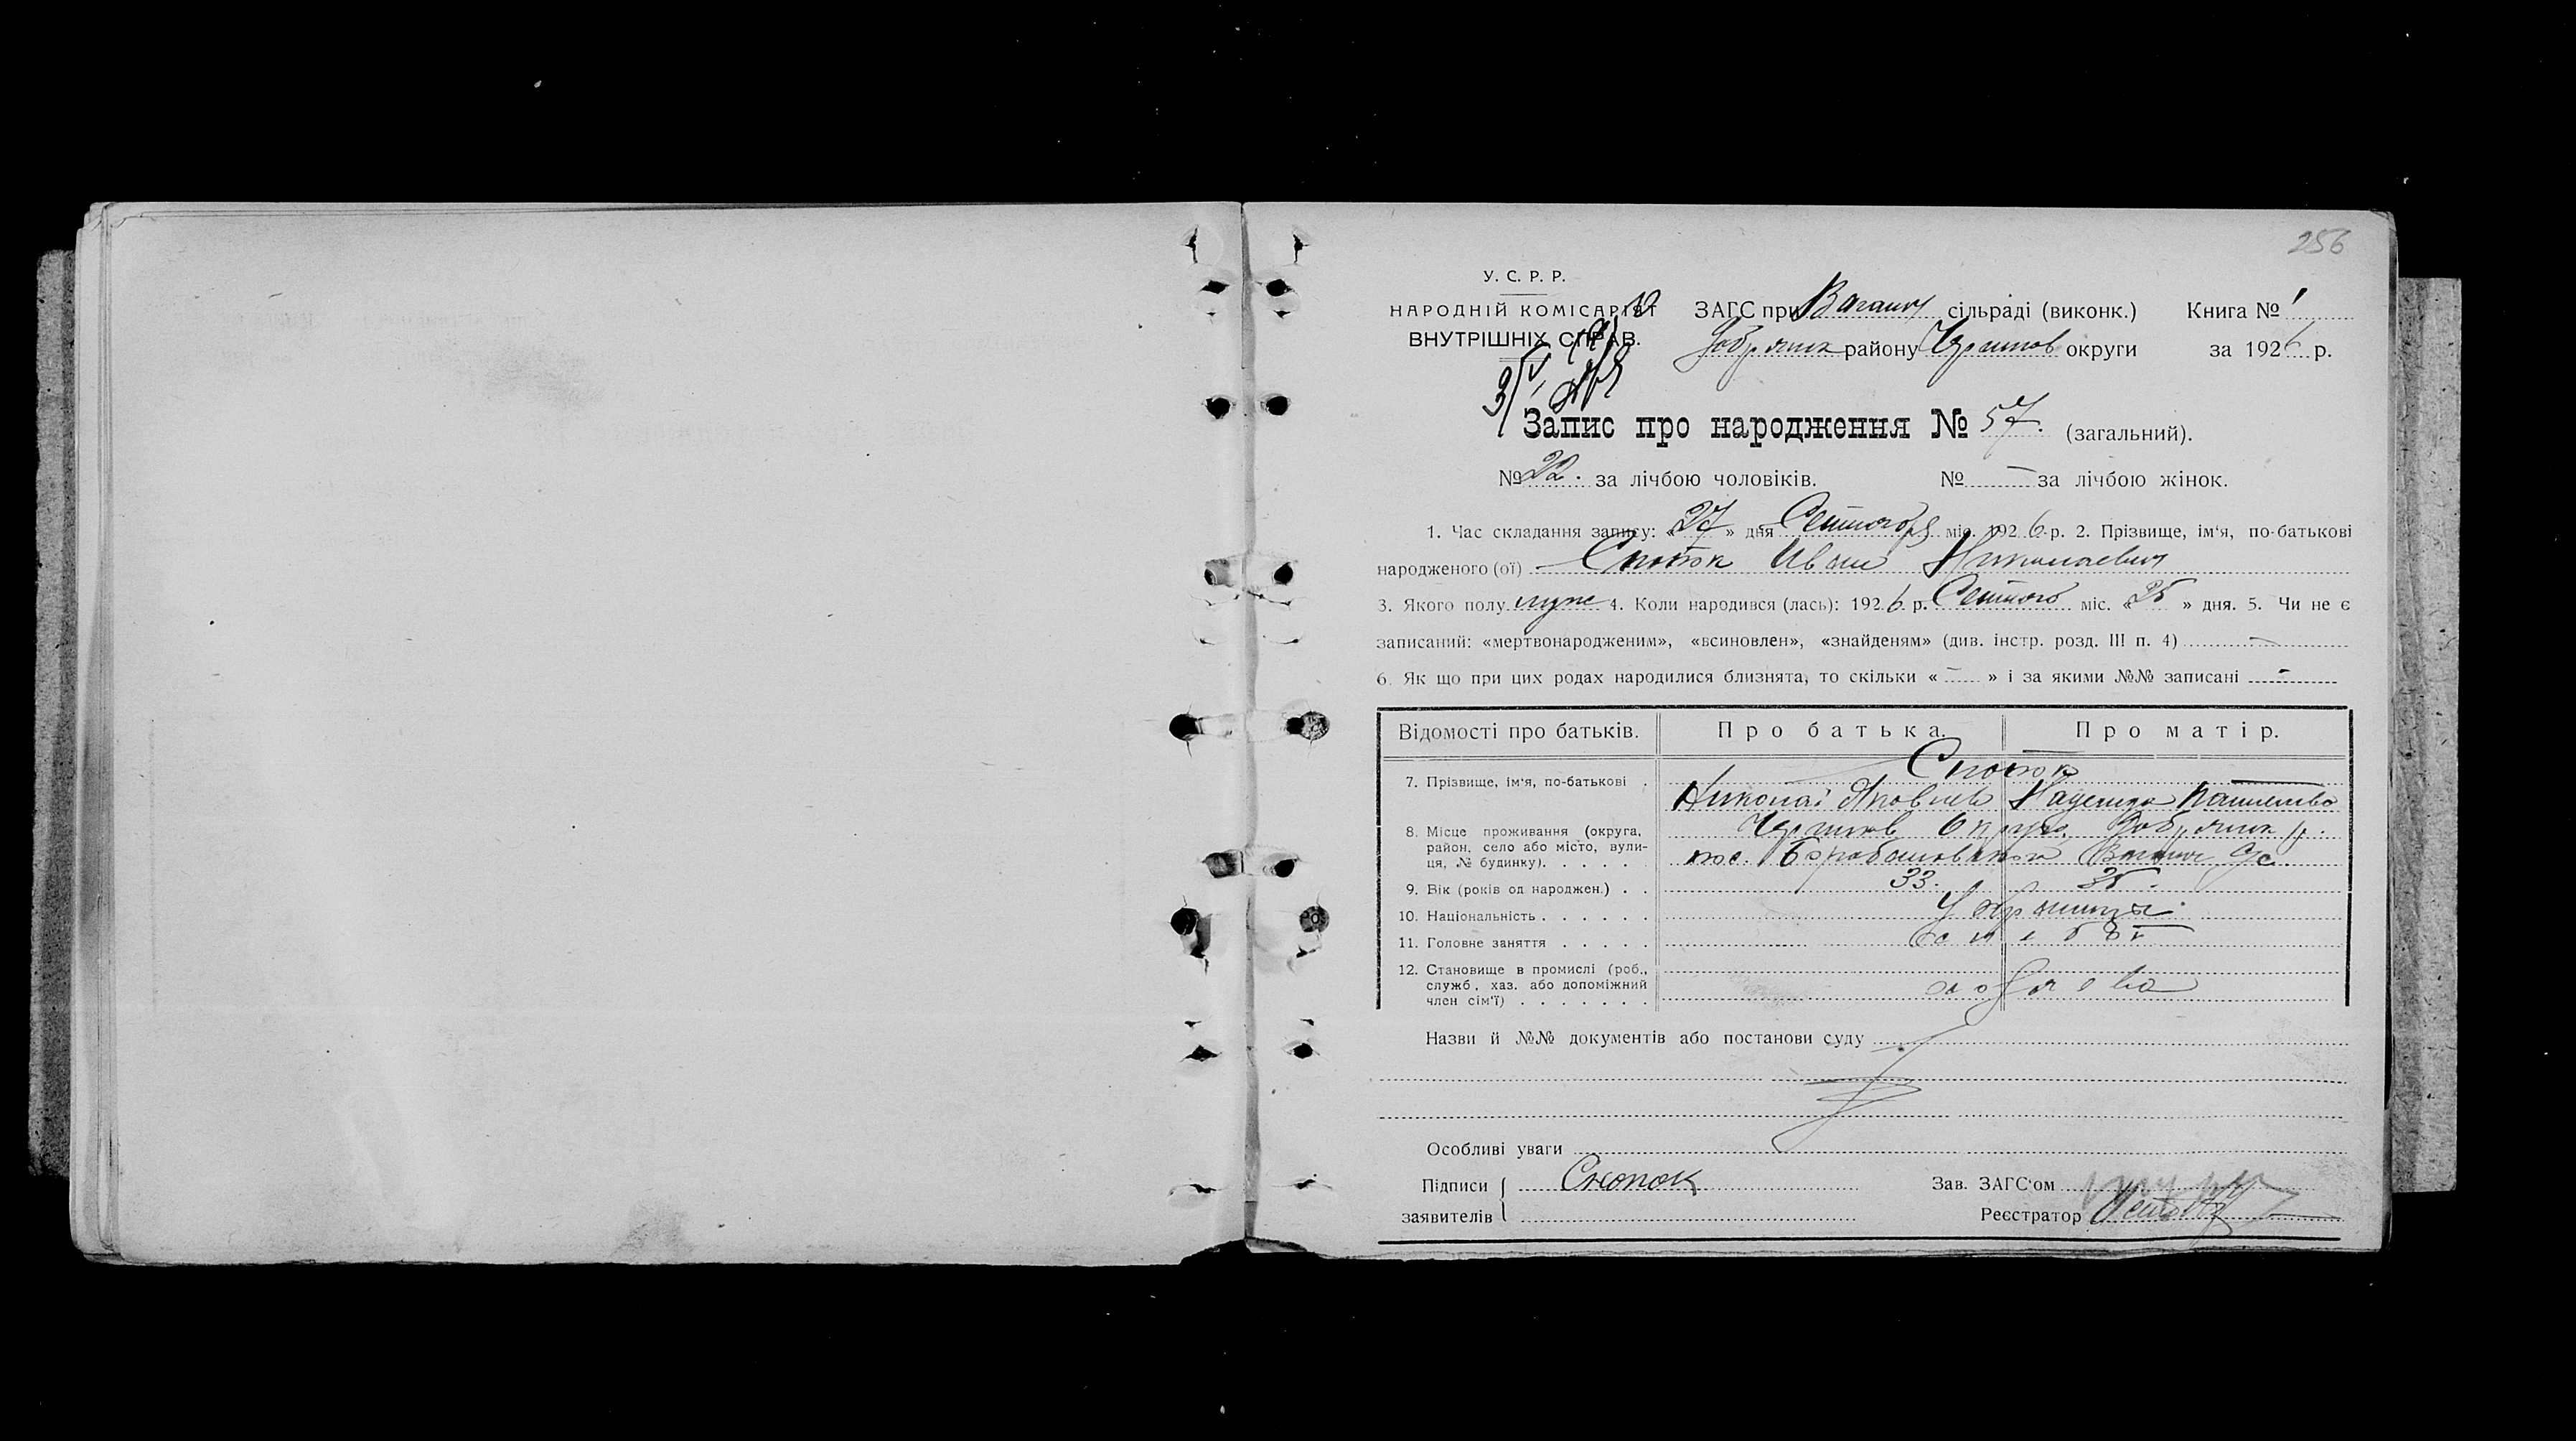 256
У. С. Р. Р.
НАРОДНІЙ КОМІСАРІЯТ ЗАГС приВаганич сільраді (виконк.) Книга № 1
ВНУТРІШНІХ СПРАВ. Добрянск району Чернигов округи за 1926 р.
Запис про народження № 57. (загальний).
№ 22. за лічбою чоловіків. № — за лічбою жінок.
1. Час складання запису: «27» дня Сентября міс. 1926 р. 2. Прізвище, ім'я, по-батькові
народженого (ої) Иван Николаевич
3. Якого полу муж 4. Коли народився (лась): 1926 р. міс. «25» дня. 5. Чи не є
записаний: «мертвонародженим», «всиновлен», «знайденям» (див. інстр. розд. III п. 4) —
6. Як що при цих родах народилися близнята, то скільки « — » і за якими №№ записані —
Відомості про батьків. Про батька. Про матір.
7. Прізвище, ім'я, по-батькові .
Николай Яковлев Надежда
8. Місце проживання (округа, Чернигов Округа Добрянск р.
район, село або місто, вули-
ця, № будинку). . . . . .
9. Вік (років од народжен.) . . 33. 25.
10. Національність . . . . . . Украинцы
11. Головне заняття . . . . .
12. Становище в промислі (роб.,
служб, хаз. або допоміжний
член сім'ї) . . . . . . . хозяева
Назви й №№ документів або постанови суду
Особливі уваги
Підписи Снопок Зав. ЗАГС'ом
заявителів Реєстратор